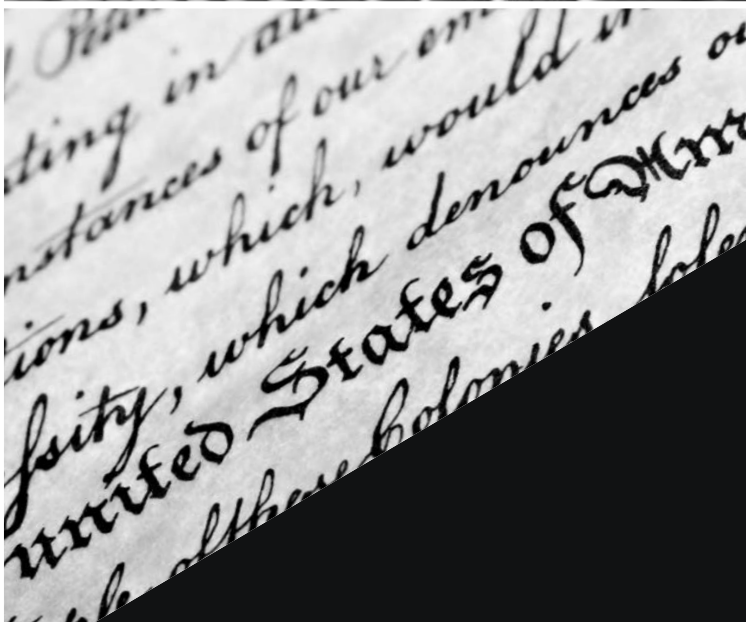 ting in
nstances of our em
tions, which, would in
ssity, which denounces ou
united States of Amer
ple of these Colonies